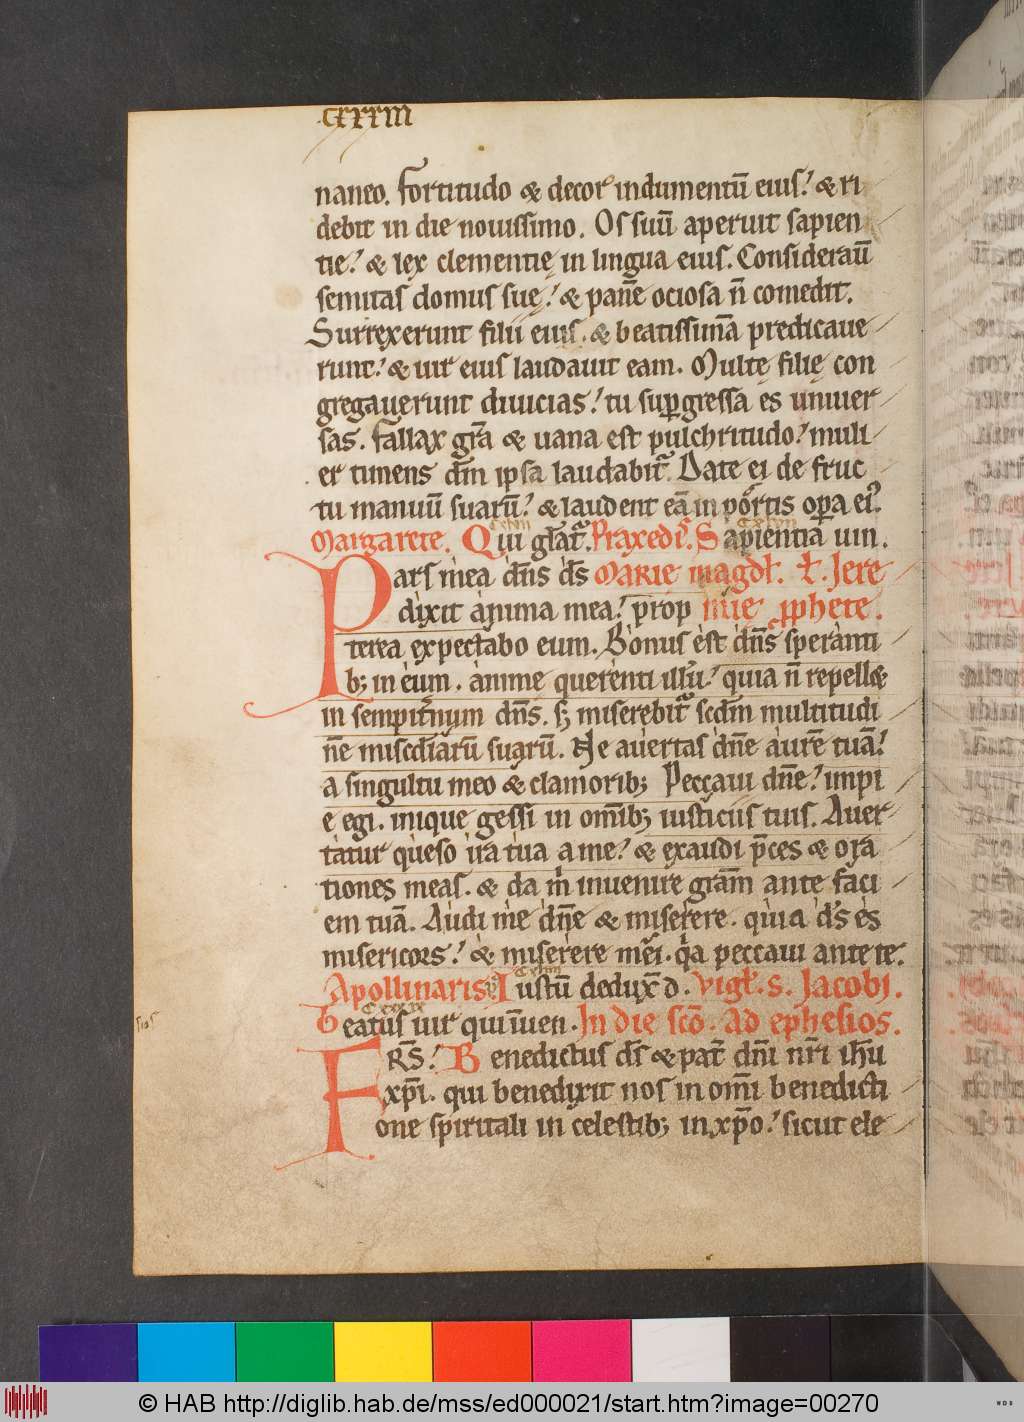 cxxxiii
naneo. Fortitudo & decor indumentū eius! & ri
debit in die nouissimo. Os suū aperuit sapien
tie! & lex clementię in lingua eius. Considerauͫ
semitas domus suę! & panē ociosa n̄ comedit.
Surrexerunt filii eius. & beatissimā predicaue
runt! & uir eius laudauit eam. Multę filię con
gregauerunt diuicias! tu suꝑgressa es uniuer
sas. Fallax gr̄a & uana est pulchritudo! muli
er timens dm̄ ipsa laudabitᷣ. Date ei de fruc
tu manuū suarū! & laudent eā in portis oꝑa ei᷒.
Margarete. Qui gl̄atᷣ. Praxedis. Sapientiā uin.
Pars mea dn̄s d̄s Marie magdal̄. ł. Jere
dixit anima mea! prop mie ꝓphete.
terea expectabo eum. Bonus est dn̄s speranti
bꝫ in eum. anime querenti illū! quia n̄ repell&
in sempitn̄um dn̄s. sꝫ miserebitᷣ scdm̄ multitudi
nē miscd̄iarū suarū. Ne auertas dn̄e aurē tuā!
a singultu meo & clamoribꝫ Peccaui dn̄e! impi
e egi. inique gessi in omībꝫ iusticiis tuis. Auer
tatur queso ira tua a me! & exaudi p̄ces & ora
tiones meas. & da m̄ inuenire grām ante faci
em tuā. Audi me dn̄e & miserere. quia d̄s es
misericors! & miserere mei. qa peccaui ante te.
Apollinaris Iustū deduxͭ d. Vigł. s. Jacobi.
Beatus uir qui inuen. In die sc̄o. Ad ephesios.
FRS̄! Benedictus d̄s & pat̄ dn̄i nr̄i ih̄u
xp̄i. qui benedixit nos in om̄i benedicti
one spiritali in celestibꝫ in xp̄o! sicut ele
© HAB http://diglib.hab.de/mss/ed000021/start.htm?image=00270